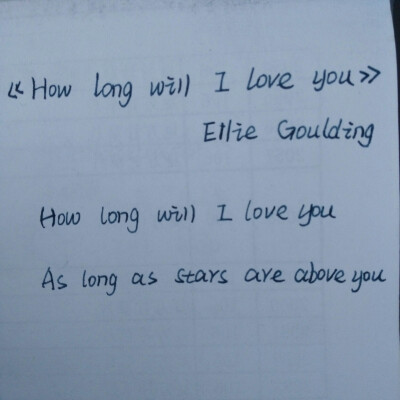 《How long will I love you》
Ellie Goulding
How long will I love you
As long as stars are above you